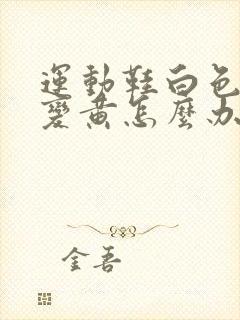 運動鞋白色
變黃怎麼办
金吾